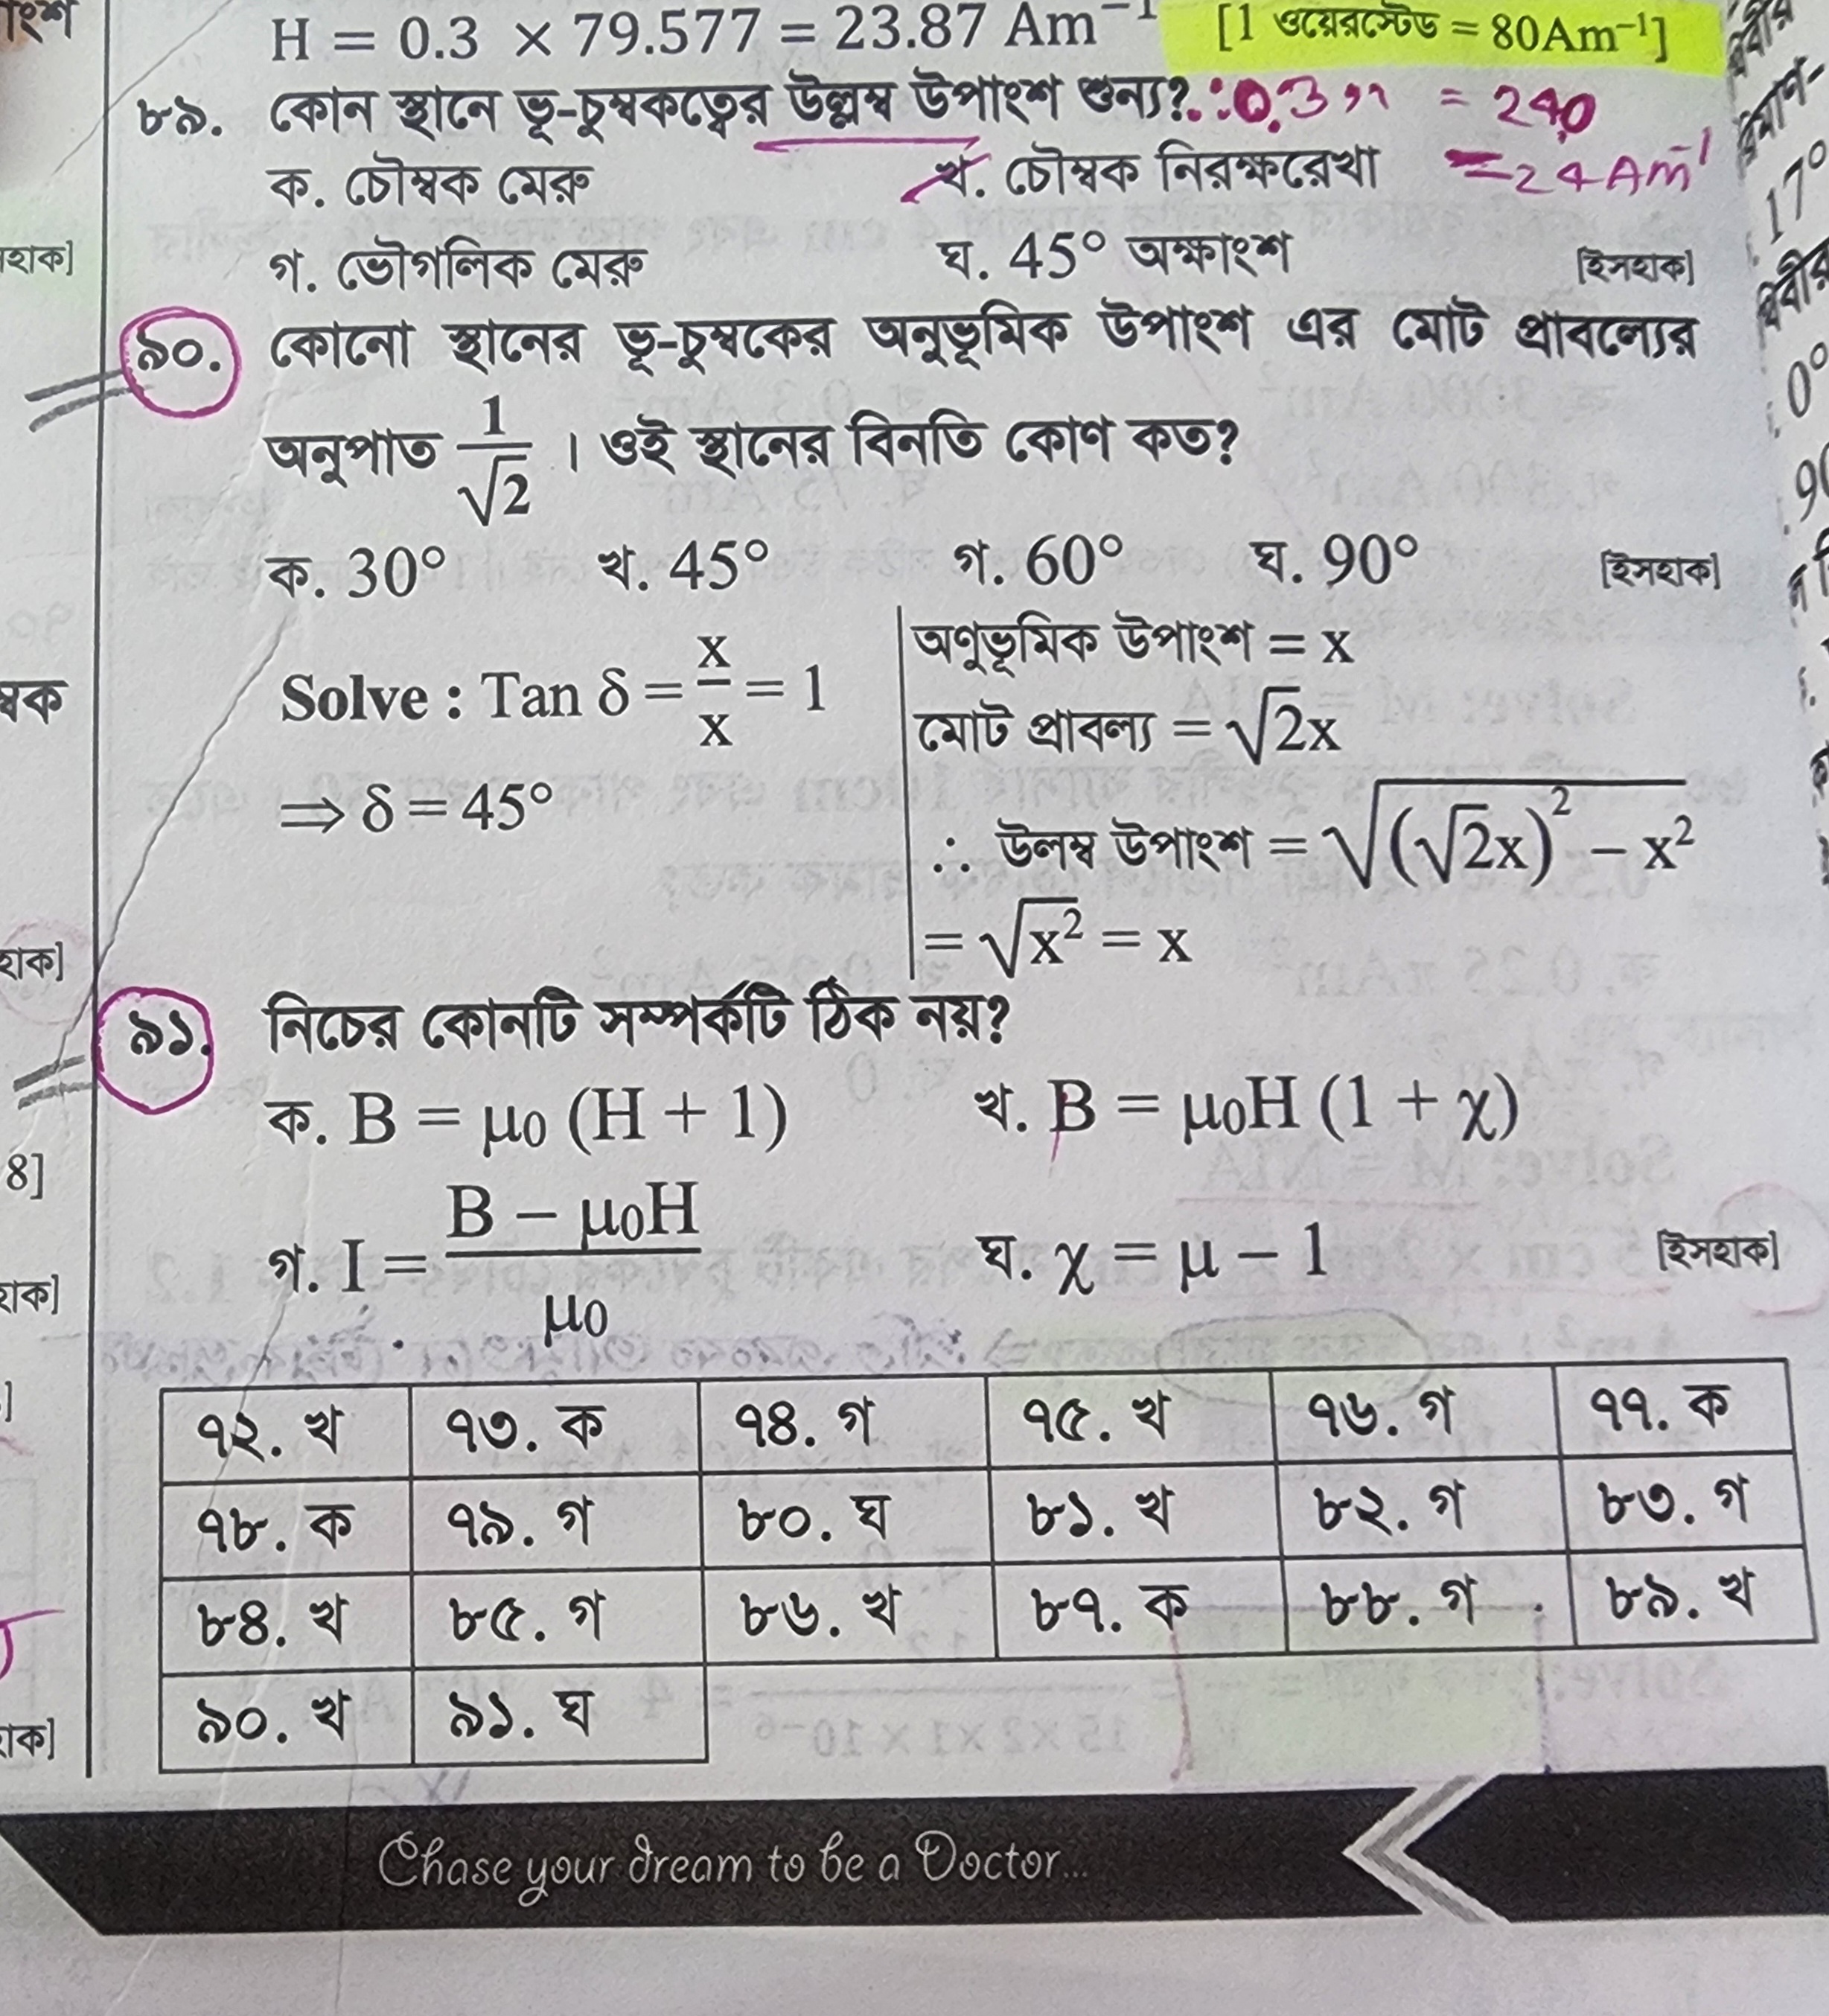 াংশ
H = 0.3 × 79.577 = 23.87 Am⁻¹ [1 ওয়েরস্টেড = 80Am⁻¹]
৮৯. কোন স্থানে ভূ-চুম্বকত্বের উল্লম্ব উপাংশ শুন্য? ∴ 0.3 " = 240
ক. চৌম্বক মেরু খ. চৌম্বক নিরক্ষরেখা = 24 Am⁻¹
গ. ভৌগলিক মেরু ঘ. 45° অক্ষাংশ [ইসহাক]
৯০. কোনো স্থানের ভূ-চুম্বকের অনুভূমিক উপাংশ এর মোট প্রাবল্যের
অনুপাত 1/√2 । ওই স্থানের বিনতি কোণ কত?
ক. 30° খ. 45° গ. 60° ঘ. 90° [ইসহাক]
Solve : Tan δ = x/x = 1
⇒ δ = 45°
অণুভূমিক উপাংশ = x
মোট প্রাবল্য = √2x
∴ উলম্ব উপাংশ = √((√2x)² − x²)
= √x² = x
৯১. নিচের কোনটি সম্পর্কটি ঠিক নয়?
ক. B = μ₀ (H + 1) খ. B = μ₀H (1 + χ)
গ. I = (B − μ₀H)/μ₀ ঘ. χ = μ − 1 [ইসহাক]
৭২. খ ৭৩. ক ৭৪. গ ৭৫. খ ৭৬. গ ৭৭. ক
৭৮. ক ৭৯. গ ৮০. ঘ ৮১. খ ৮২. গ ৮৩. গ
৮৪. খ ৮৫. গ ৮৬. খ ৮৭. ক ৮৮. গ ৮৯. খ
৯০. খ ৯১. ঘ
Chase your dream to be a Doctor...
হাক]
ম্বক
হাক]
8]
হাক]
হাক]
17°
0°